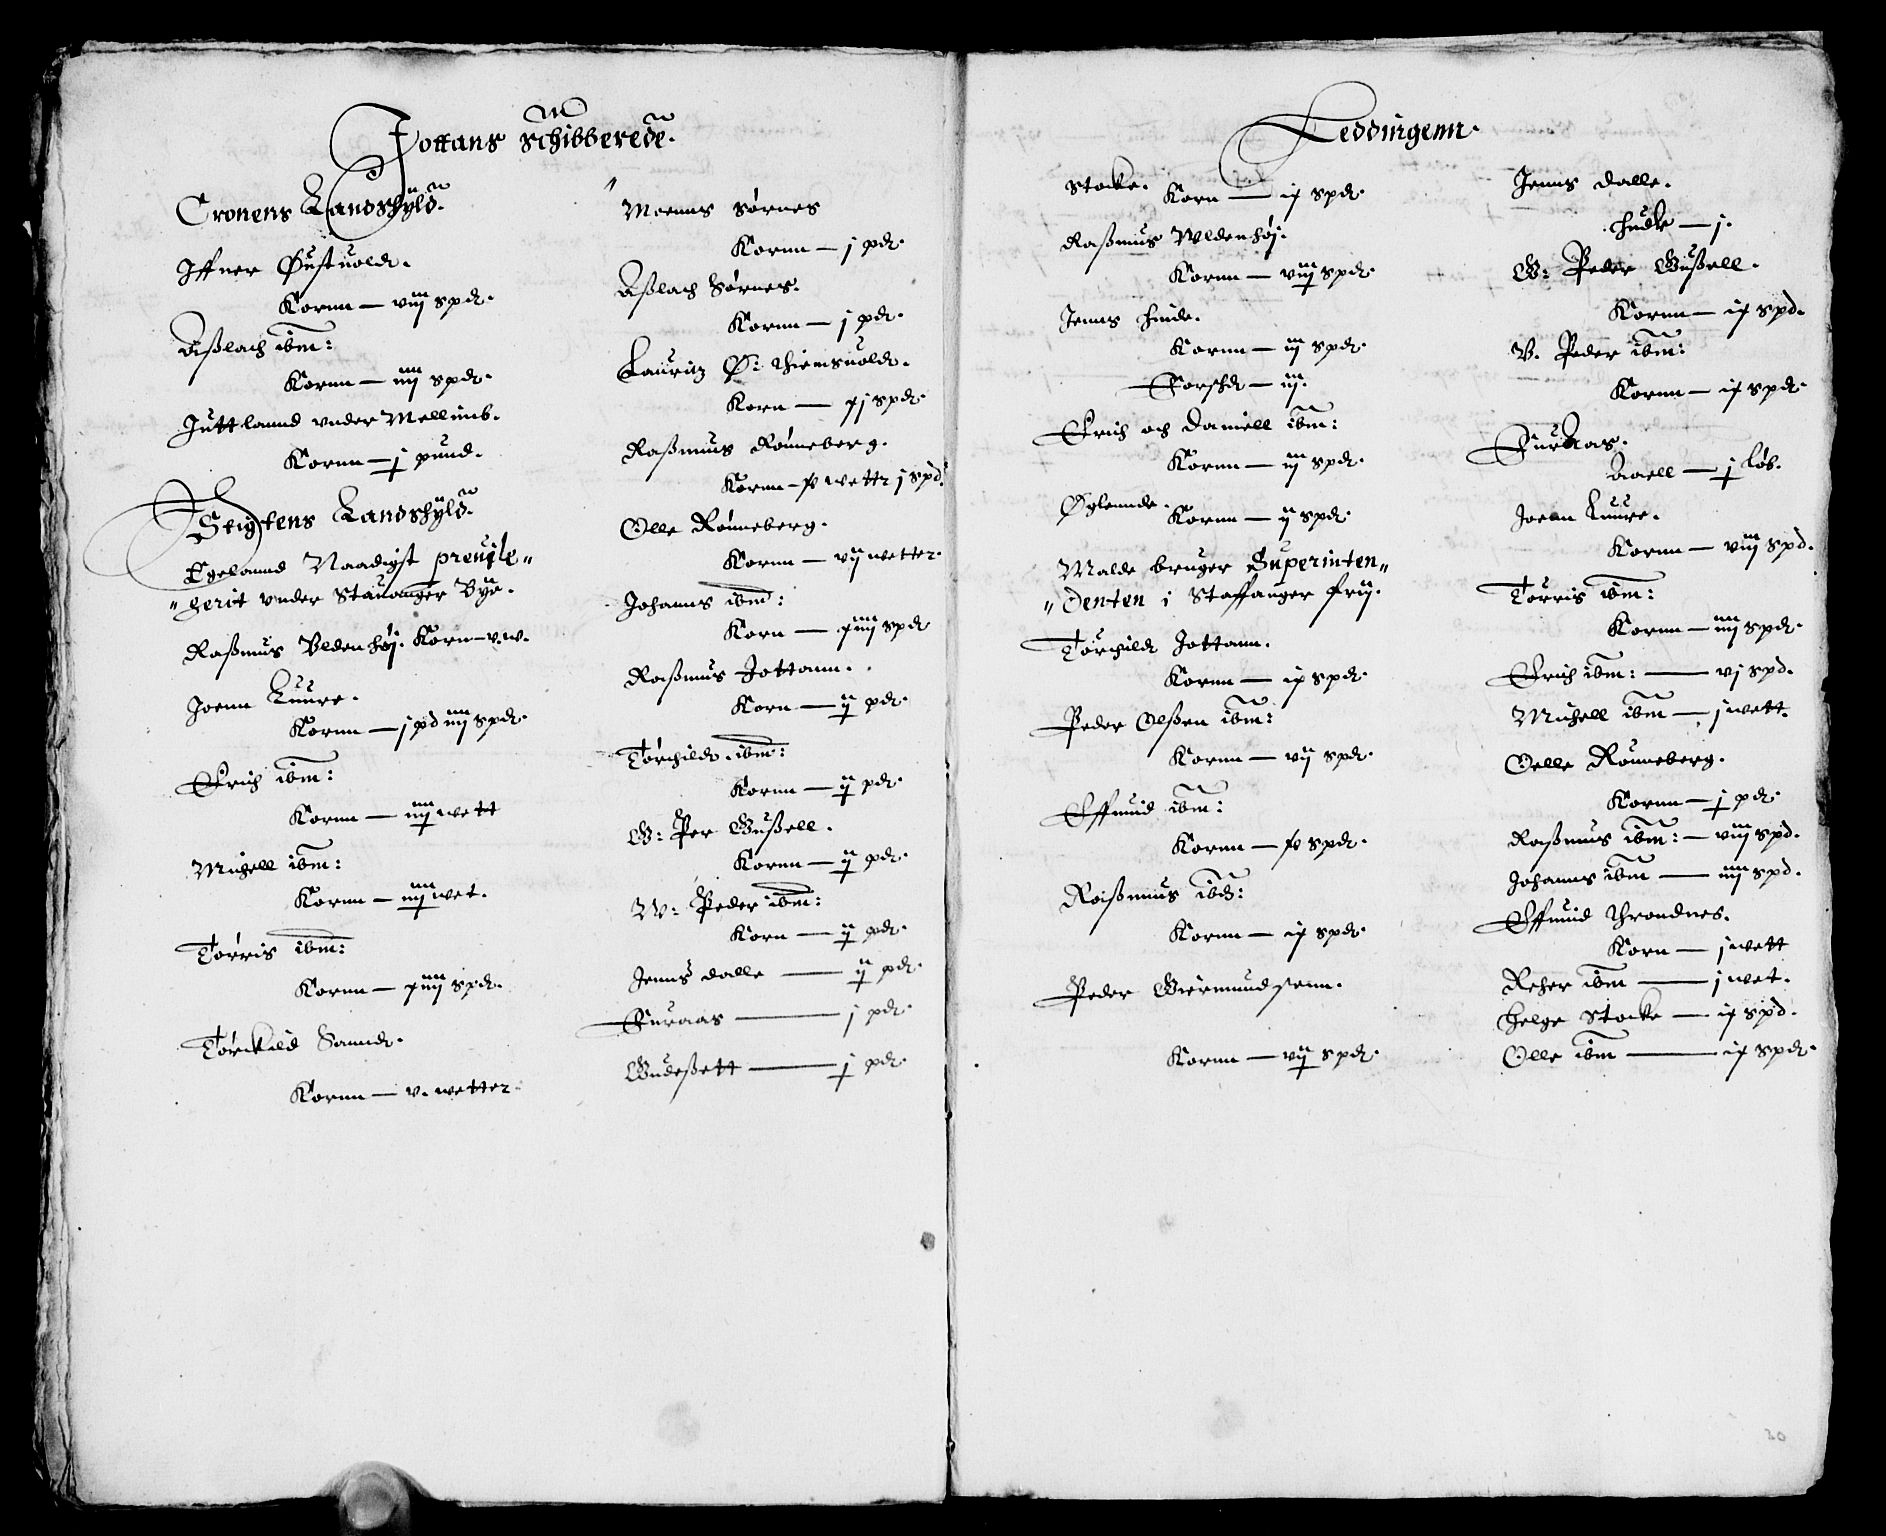 Jottans Schibberede.
Cronens Landschÿld.
Iffuer Øustuold.
Kornn — viij spd.
Aslach ibm:
Kornn — iiij spd.
Juttlannd vnder Mellinb.
Kornn — j pund.
Stigtens Landschÿld.
Egelannd Naadigst preuile„
„gerit vnder Stauanger Bye.
Rasmus Vldenhøj. Korn — v. w.
Joenn Luure.
Kornn — j pd iiij spd.
Erich ibm:
Kornn — iiij wett
Michell ibm:
Kornn — iiij wet.
Tørris ibm:
Kornn — xiiij spd.
Tørckild Sannd.
Kornn — v. wetter.
Moenns Sørnes
Kornn — j pd.
Aslach Sørnes.
Kornn — j pd.
Lauritz Ø: thiemsuold.
Korn — xj spd.
Rasmus Rønneberg.
Kornn — x wetter j spd.
Olle Rønneberg.
Kornn — vij wetter.
Johanns ibm:
Korn — xiiij spd
Rasmus Jottann.
Korn — ij pd.
Tørchild ibm:
Kornn — ij pd.
G: Per Gussell.
Kornn — ij pd.
W: Peder ibm:
Korn — ij pd.
Jenns dalle — ij pd.
Furaas — j pd.
Gudesett — j pd.
Leddingenn.
Stocke.
Korn — ix spd.
Rasmus Wldenhøj.
Kornn — viij spd.
Jenns huide.
Kornn — iij spd.
Torschd — iij.
Erich och Daniell ibm:
Kornn — iij spd.
Øglennde.
Kornn — ij spd.
Malde bruger Superinten„
„denten i Staffanger frij.
Tørchild Jottann.
Kornn — ix spd.
Peder Olssen ibm:
Kornn — vij spd.
Effuind ibm:
Kornn — x spd.
Rasmus ibd:
Kornn — ix spd.
Peder Giermundsenn.
Kornn — vij spd.
Jenns dalle.
hude — j.
G: Peder Gussell.
Kornn — ix spd.
V. Peder ibm:
Kornn — ix spd.
Furaas.
Aaell — j løb.
Joenn Luure.
Kornn — viij spd.
Tørris ibm:
Kornn — iiij spd.
Erich ibm: — vj spd.
Michell ibm — j wett.
Oelle Rønneberg.
Kornn — j pd.
Rasmus ibm: — viij spd.
Johanns ibm — iiij spd.
Effuind Throndnes.
Korn — j wett
Reher ibm — j wet.
Helge Stocke — ix spd.
Olle ibm — ix spd.
30